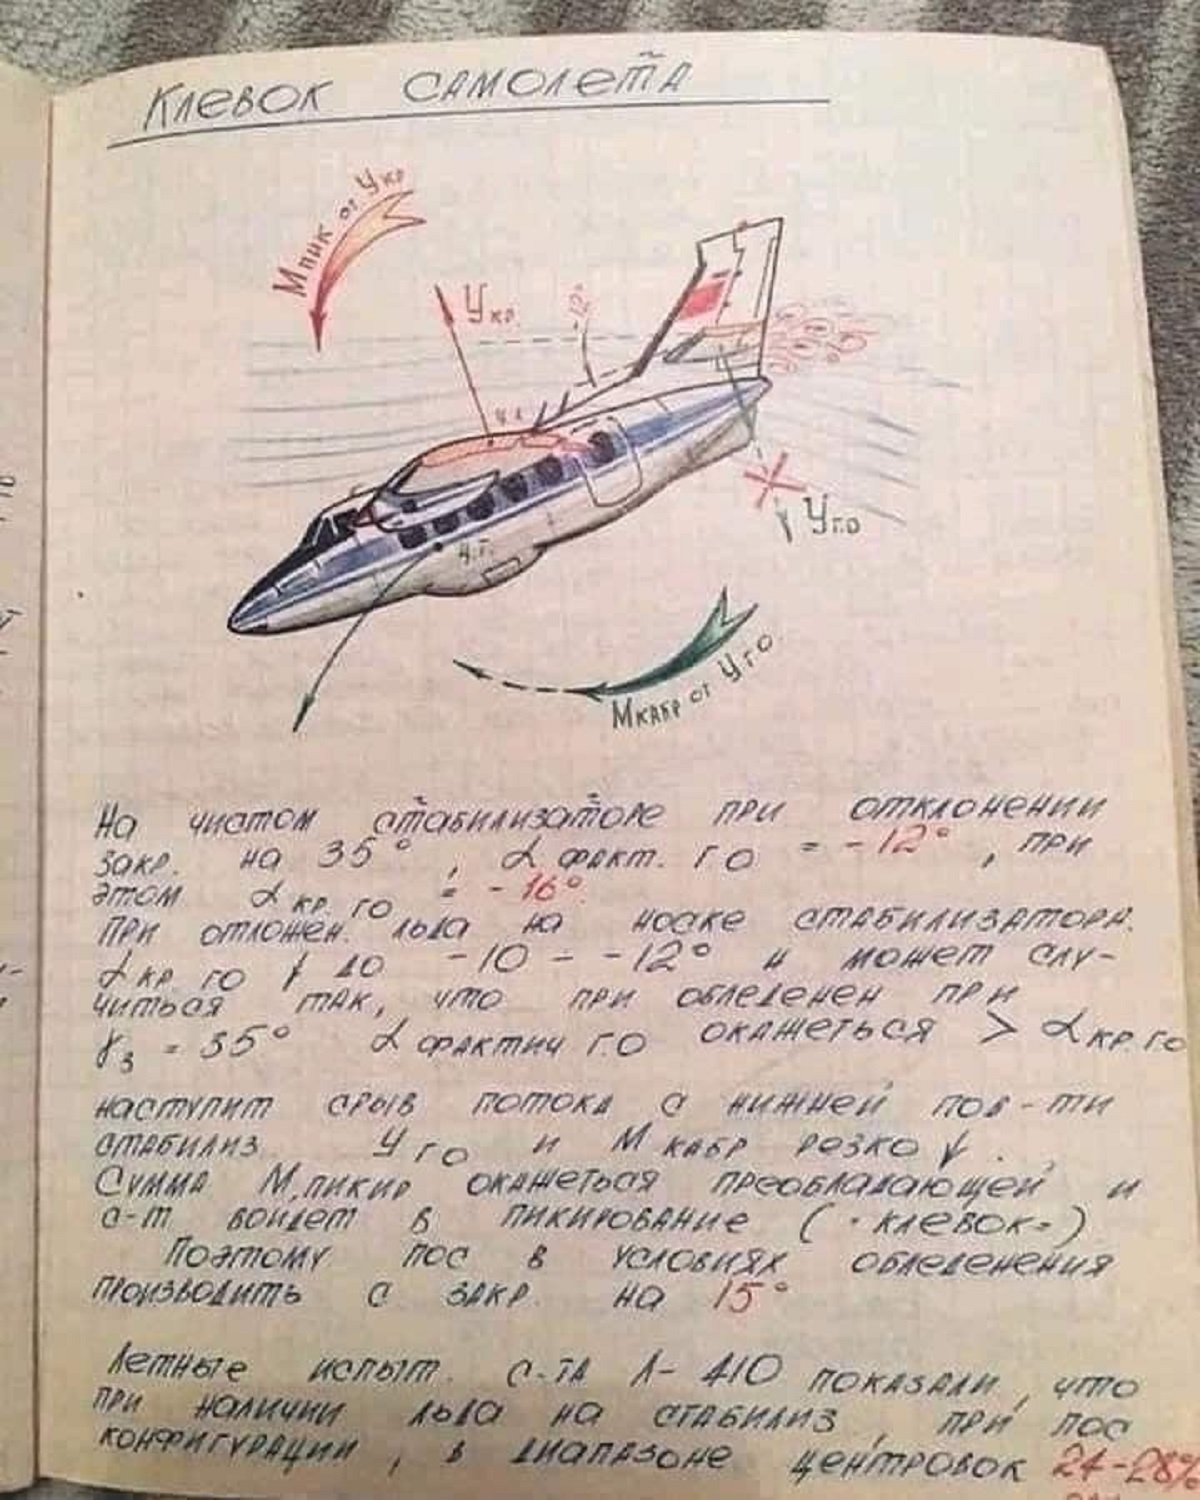 Клевок самолета
Мпик от Укр
Укр.
-12°
ц.т.
Уго
Мкабр от Уго.
На чистом стабилизаторе при отклонении
закр. на 35°, α факт. го = -12°, при
этом α кр. го = -16°.
При отложен. льда на носке стабилизатора.
α кр го ↓ до -10 ÷ -12° и может слу-
читься так, что при обледенен при
γз = 35° α фактич го окажеться > α кр. го
наступит срыв потока с нижней пов-ти
стабилиз. У го и М кабр резко ↓.
Сумма М пикир окажеться преобладающей и
с-т войдет в пикирование ("клевок")
Поэтому пос в условиях обледенения
производить с закр. на 15°
Летные испыт. с-та Л-410 показали, что
при наличии льда на стабилиз, при пос
конфигурации, в диапазоне центровок 24-28%